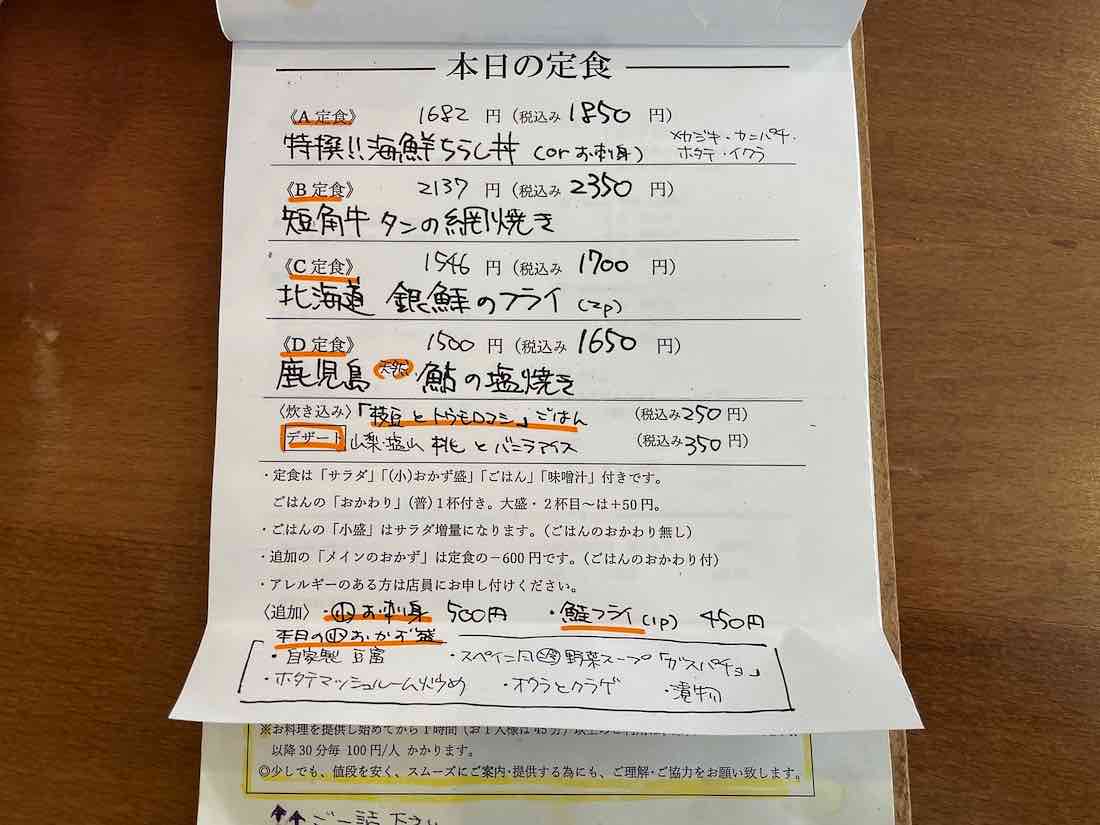 本日の定食
《A 定食》 1682 円（税込み 1850 円）
特撰!!海鮮ちらし丼（or お刺身） メカジキ・カニバチ・
ホタテ・イクラ
《B 定食》 2137 円（税込み 2350 円）
短角牛 タンの網焼き
《C 定食》 1546 円（税込み 1700 円）
北海道 銀鮭のフライ（2p）
《D 定食》 1500 円（税込み 1650 円）
鹿児島 天然 鮎の塩焼き
〈炊き込み〉「枝豆とトウモロコシ」ごはん （税込み250円）
デザート 山梨・塩山 桃とバニラアイス （税込み350円）
・定食は「サラダ」「(小)おかず盛」「ごはん」「味噌汁」付きです。
ごはんの「おかわり」(普)1杯付き。大盛・２杯目～は＋50円。
・ごはんの「小盛」はサラダ増量になります。（ごはんのおかわり無し）
・追加の「メインのおかず」は定食の－600円です。（ごはんのおかわり付）
・アレルギーのある方は店員にお申し付けください。
〈追加〉・小お刺身 500円 ・鮭フライ（1p） 450円
本日の小おかず盛
・自家製 豆富 ・スペイン風 野菜スープ「ガスパチョ」
・ホタテマッシュルーム炒め ・オクラとクラゲ ・漬物
※お料理を提供し始めてから１時間（お１人様は45分）以上の
以降30分毎 100円/人 かかります。
◎少しでも、値段を安く、スムーズにご案内・提供する為にも、ご理解・ご協力をお願い致します。